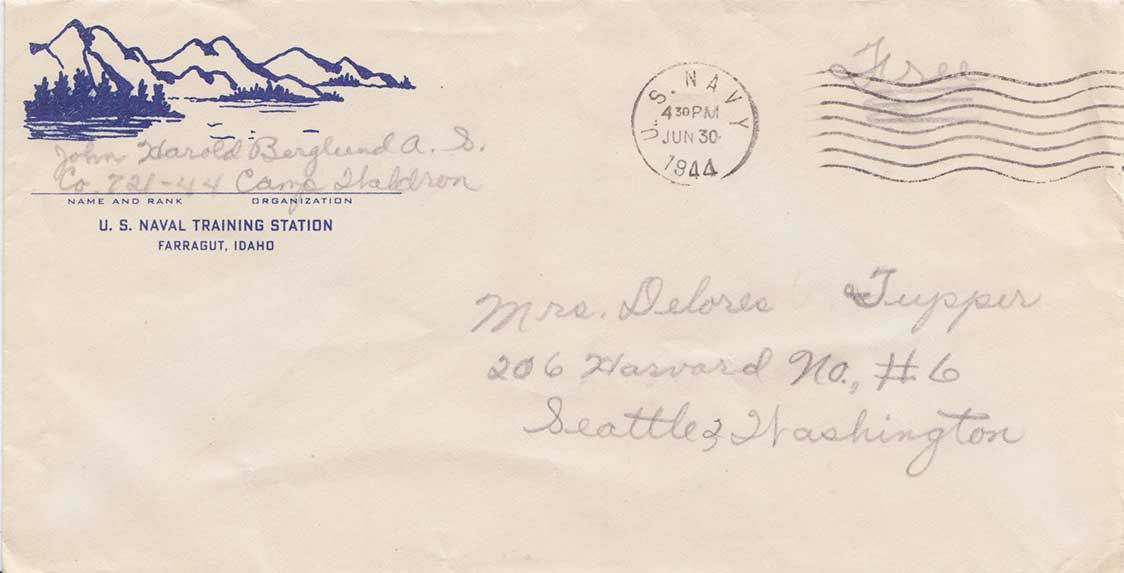 John Harold Berglund A. S.
Co. 721-44 Camp Waldron
NAME AND RANK ORGANIZATION
U. S. NAVAL TRAINING STATION
FARRAGUT, IDAHO
U. S. NAVY
4 30 PM
JUN 30
1944
Free
Mrs. Delores Tupper
206 Harvard No., #6
Seattle, Washington